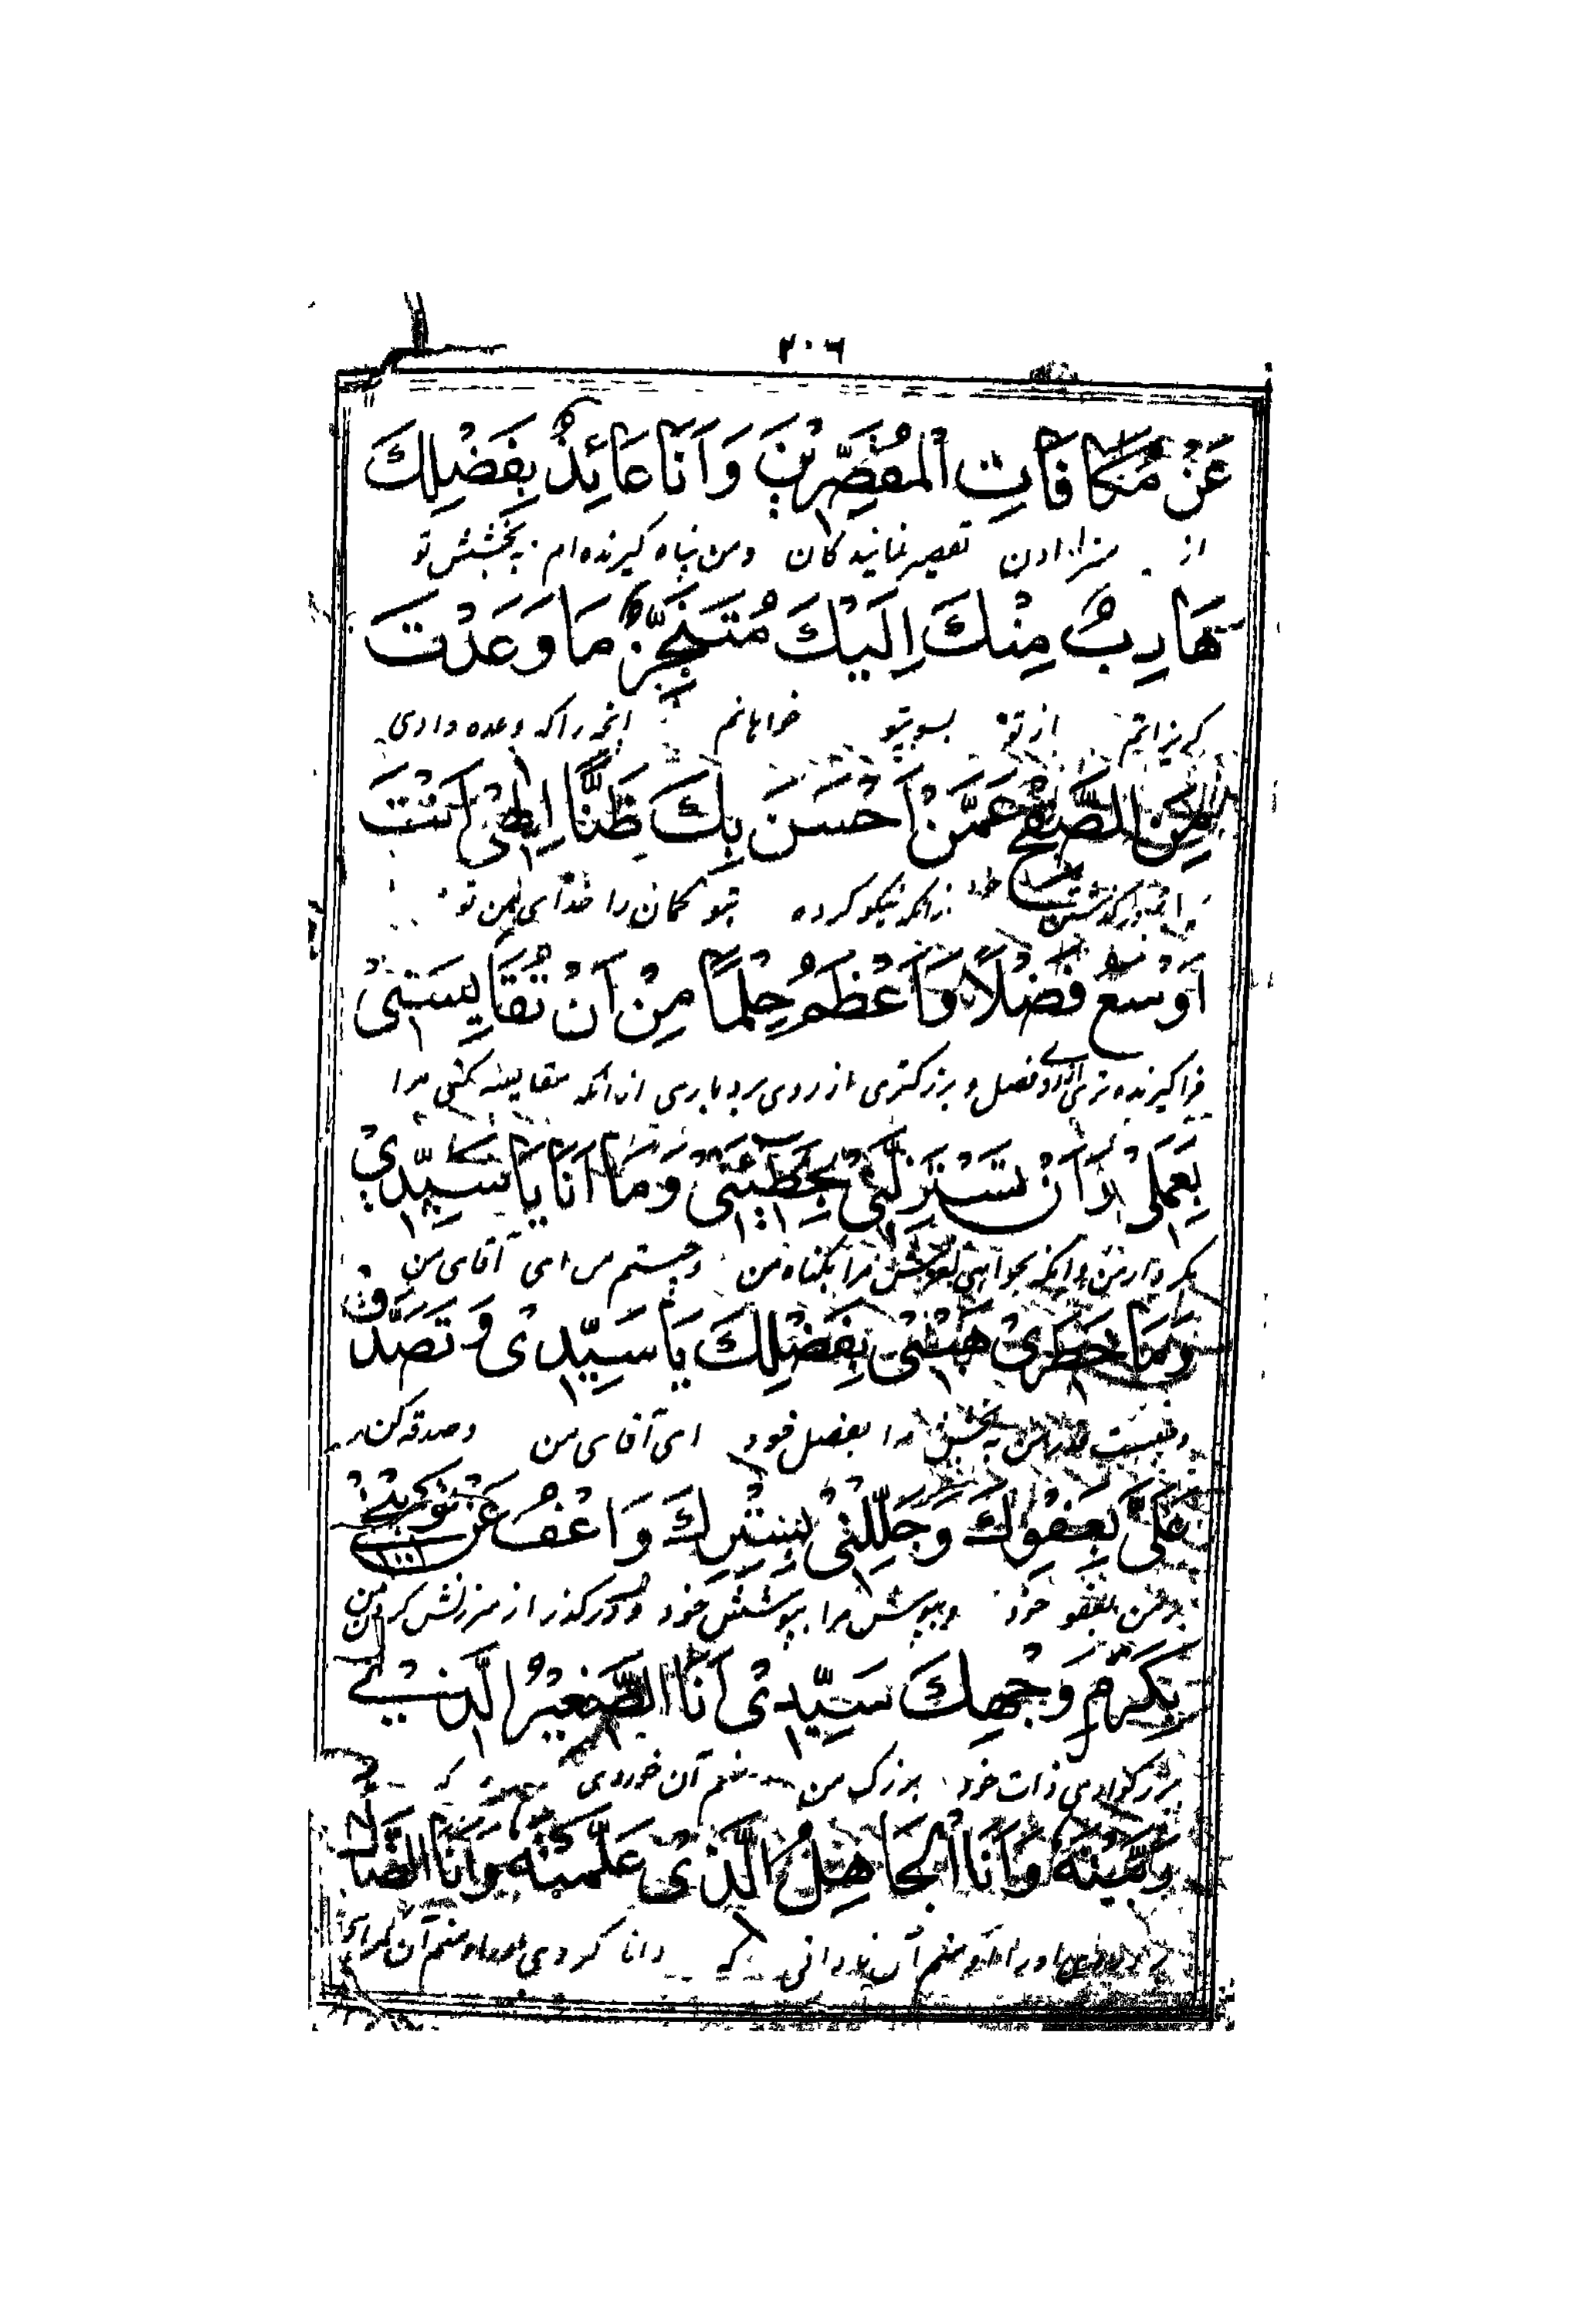 ٢٠٦
عَنْ مُكَافَاتِ الْمُقَصِّرِيْنَ وَاَنَا عَائِذٌ بِفَضْلِكَ
از سزا دادن تقصیر نمایندگان ومن پناه گیرنده ام به بخشش تو
هَارِبٌ مِنْكَ اِلَيْكَ مُتَنَجِّزٌ مَا وَعَدْتَ
گریزانم از تو بسویتو خواهانم انچه را که وعده دادی
مِنَ الصَّفْحِ عَمَّنْ اَحْسَنَ بِكَ ظَنًّا اِلٰهِىْ اَنْتَ
نیکو کرده بتو گمان را خدای من تو
اَوْسَعُ فَضْلًا وَاَعْظَمُ حِلْمًا مِنْ اَنْ تُقَايِسَنِىْ
فرا گیرنده تری از روی فضل و بزرگتری از روی بردباری از انکه مقایسه کنی مرا
بِعَمَلِىْ اَوْ اَنْ تَسْتَزِلَّنِىْ بِخَطِيْئَتِىْ وَمَا اَنَا يَا سَيِّدِىْ
بکردار من وانکه بخواهی لغزش مرا بگناه من وچیستم من ای آقای من
وَمَا خَطَرِىْ هَبْنِىْ بِفَضْلِكَ يَا سَيِّدِىْ وَ تَصَدَّقْ
وچیست قدر من به بخش مرا بفضل خود ای آقای من وصدقه کن
عَلَىَّ بِعَفْوِكَ وَجَلِّلْنِىْ بِسِتْرِكَ وَاعْفُ عَنْ تَوْبِيْخِىْ
بر من بعفو خود وبپوش مرا بپوشش خود ودرگذر از سرزنش کردن من
بِكَرَمِ وَجْهِكَ سَيِّدِىْ اَنَا الصَّغِيْرُ الَّذِىْ
بزرگواری ذات خود بزرگ من منم آن خوردی که
رَبَّيْتَهٗ وَاَنَا الْجَاهِلُ الَّذِىْ عَلَّمْتَهٗ وَاَنَا الضَّالُّ
اورا ومنم آن نادانی که دانا کردی اورا ومنم آن گمراهی